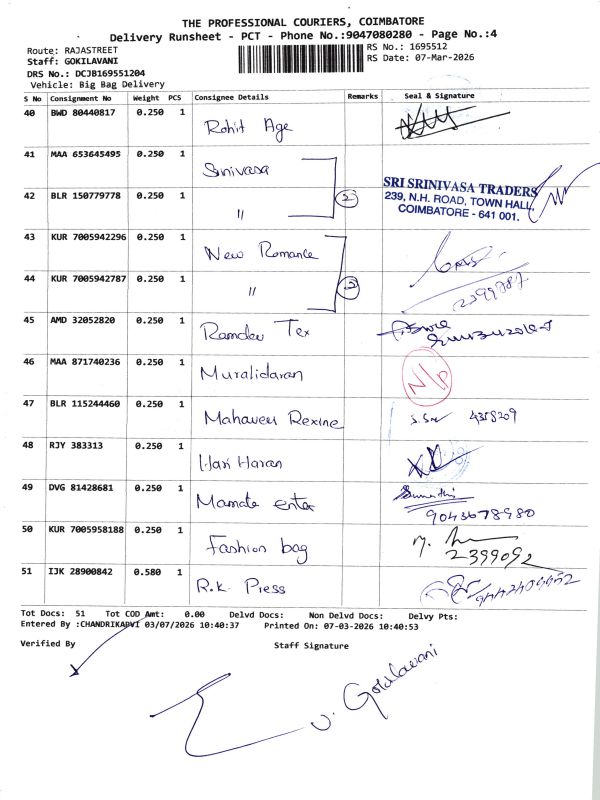 THE PROFESSIONAL COURIERS, COIMBATORE
Delivery Runsheet - PCT - Phone No.:9047080280 - Page No.:4
Route: RAJASTREET
RS No.: 1695512
Staff: GOKILAVANI
RS Date: 07-Mar-2026
DRS No.: DCJB169551204
Vehicle: Big Bag Delivery
S No Consignment No Weight PCS Consignee Details Remarks Seal & Signature
40 BWD 80440817 0.250 1 Rohit Age
41 MAA 653645495 0.250 1 Srinivasa
42 BLR 150779778 0.250 1 " 2
SRI SRINIVASA TRADERS
239, N.H. ROAD, TOWN HALL,
COIMBATORE - 641 001.
43 KUR 7005942296 0.250 1 New Romance
44 KUR 7005942787 0.250 1 "
45 AMD 32052820 0.250 1 Ramdev Tex
46 MAA 871740236 0.250 1 Muralidaran N/P
47 BLR 115244460 0.250 1 Mahaveer Rexine
48 RJY 383313 0.250 1 Hari Haran
49 DVG 81428681 0.250 1 Mamate enter
9043678980
50 KUR 7005958188 0.250 1 Fashion bag
2399092
51 IJK 28900842 0.580 1 R.K. Press
Tot Docs: 51 Tot COD Amt: 0.00 Delvd Docs: Non Delvd Docs: Delvy Pts:
Entered By :CHANDRIKAPVI 03/07/2026 10:40:37 Printed On: 07-03-2026 10:40:53
Verified By Staff Signature
V. Gokilavani